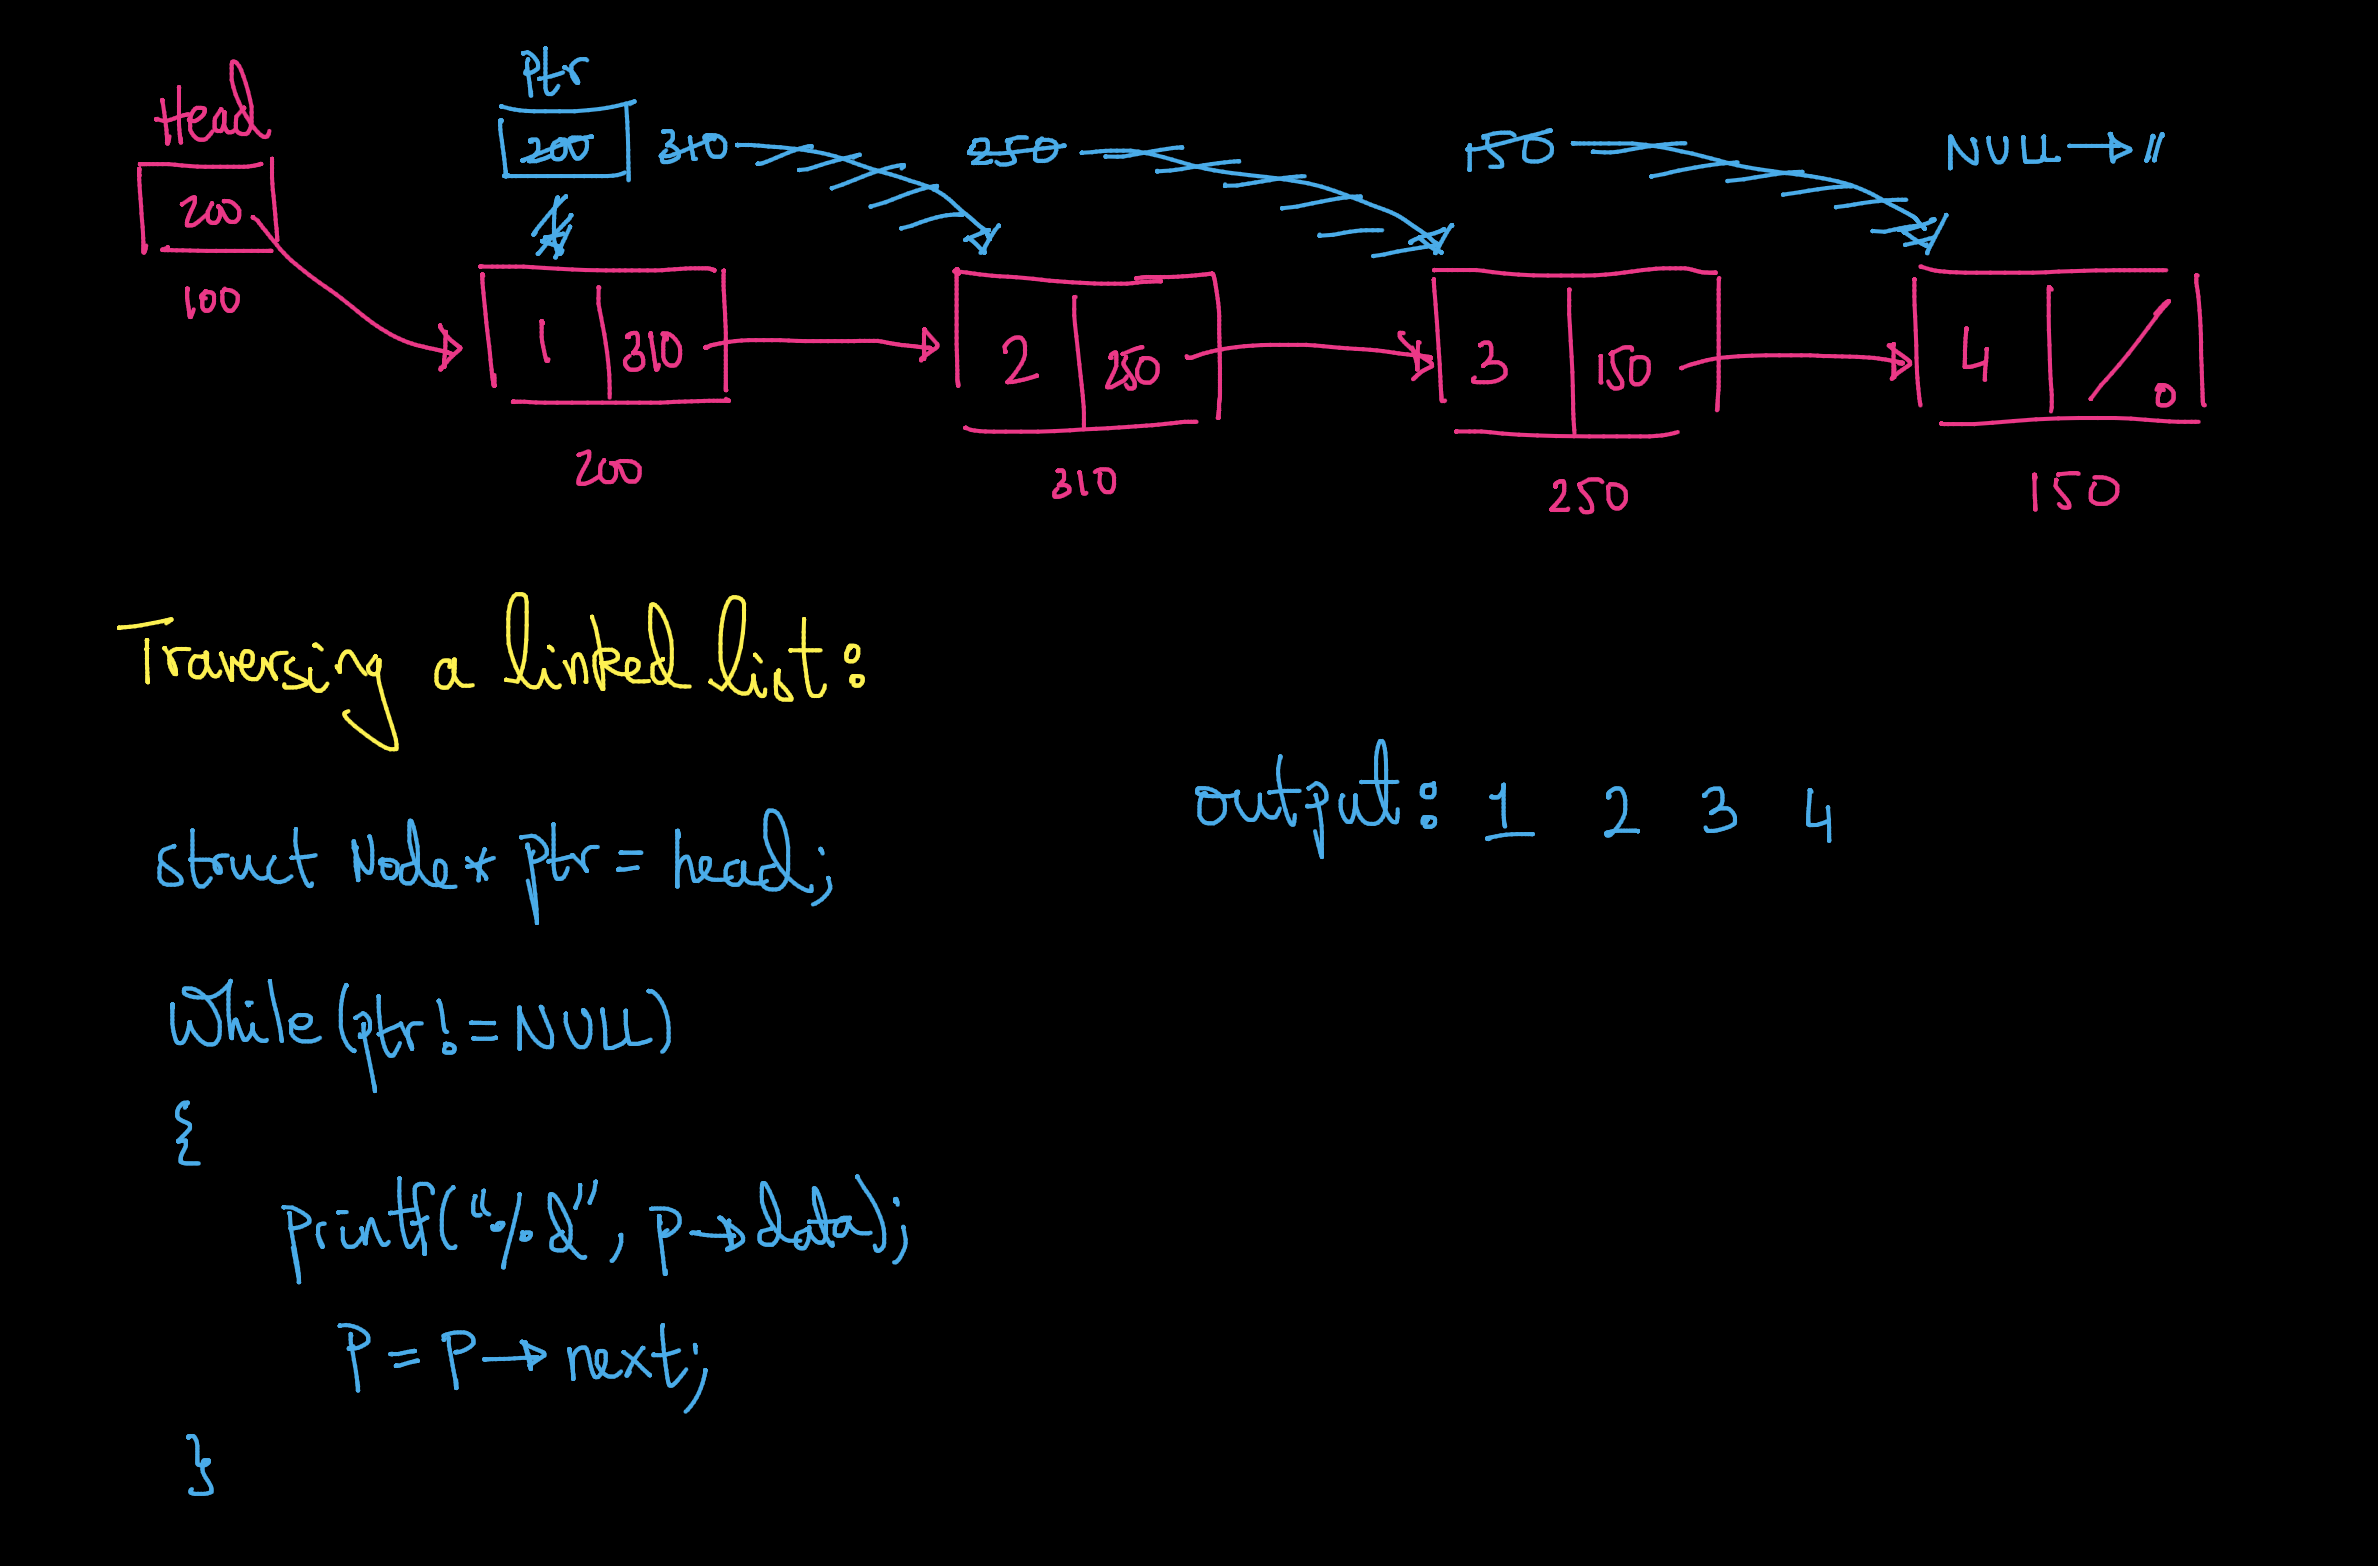 Head
Ptr
200 310 250 150 NULL → //
200
100
1 310 2 250 3 150 4 0
200 310 250 150
Traversing a linked list:
output: 1 2 3 4
struct Node* ptr = head;
While (ptr != NULL)
{
printf("%d", p→data);
P = P→next;
}